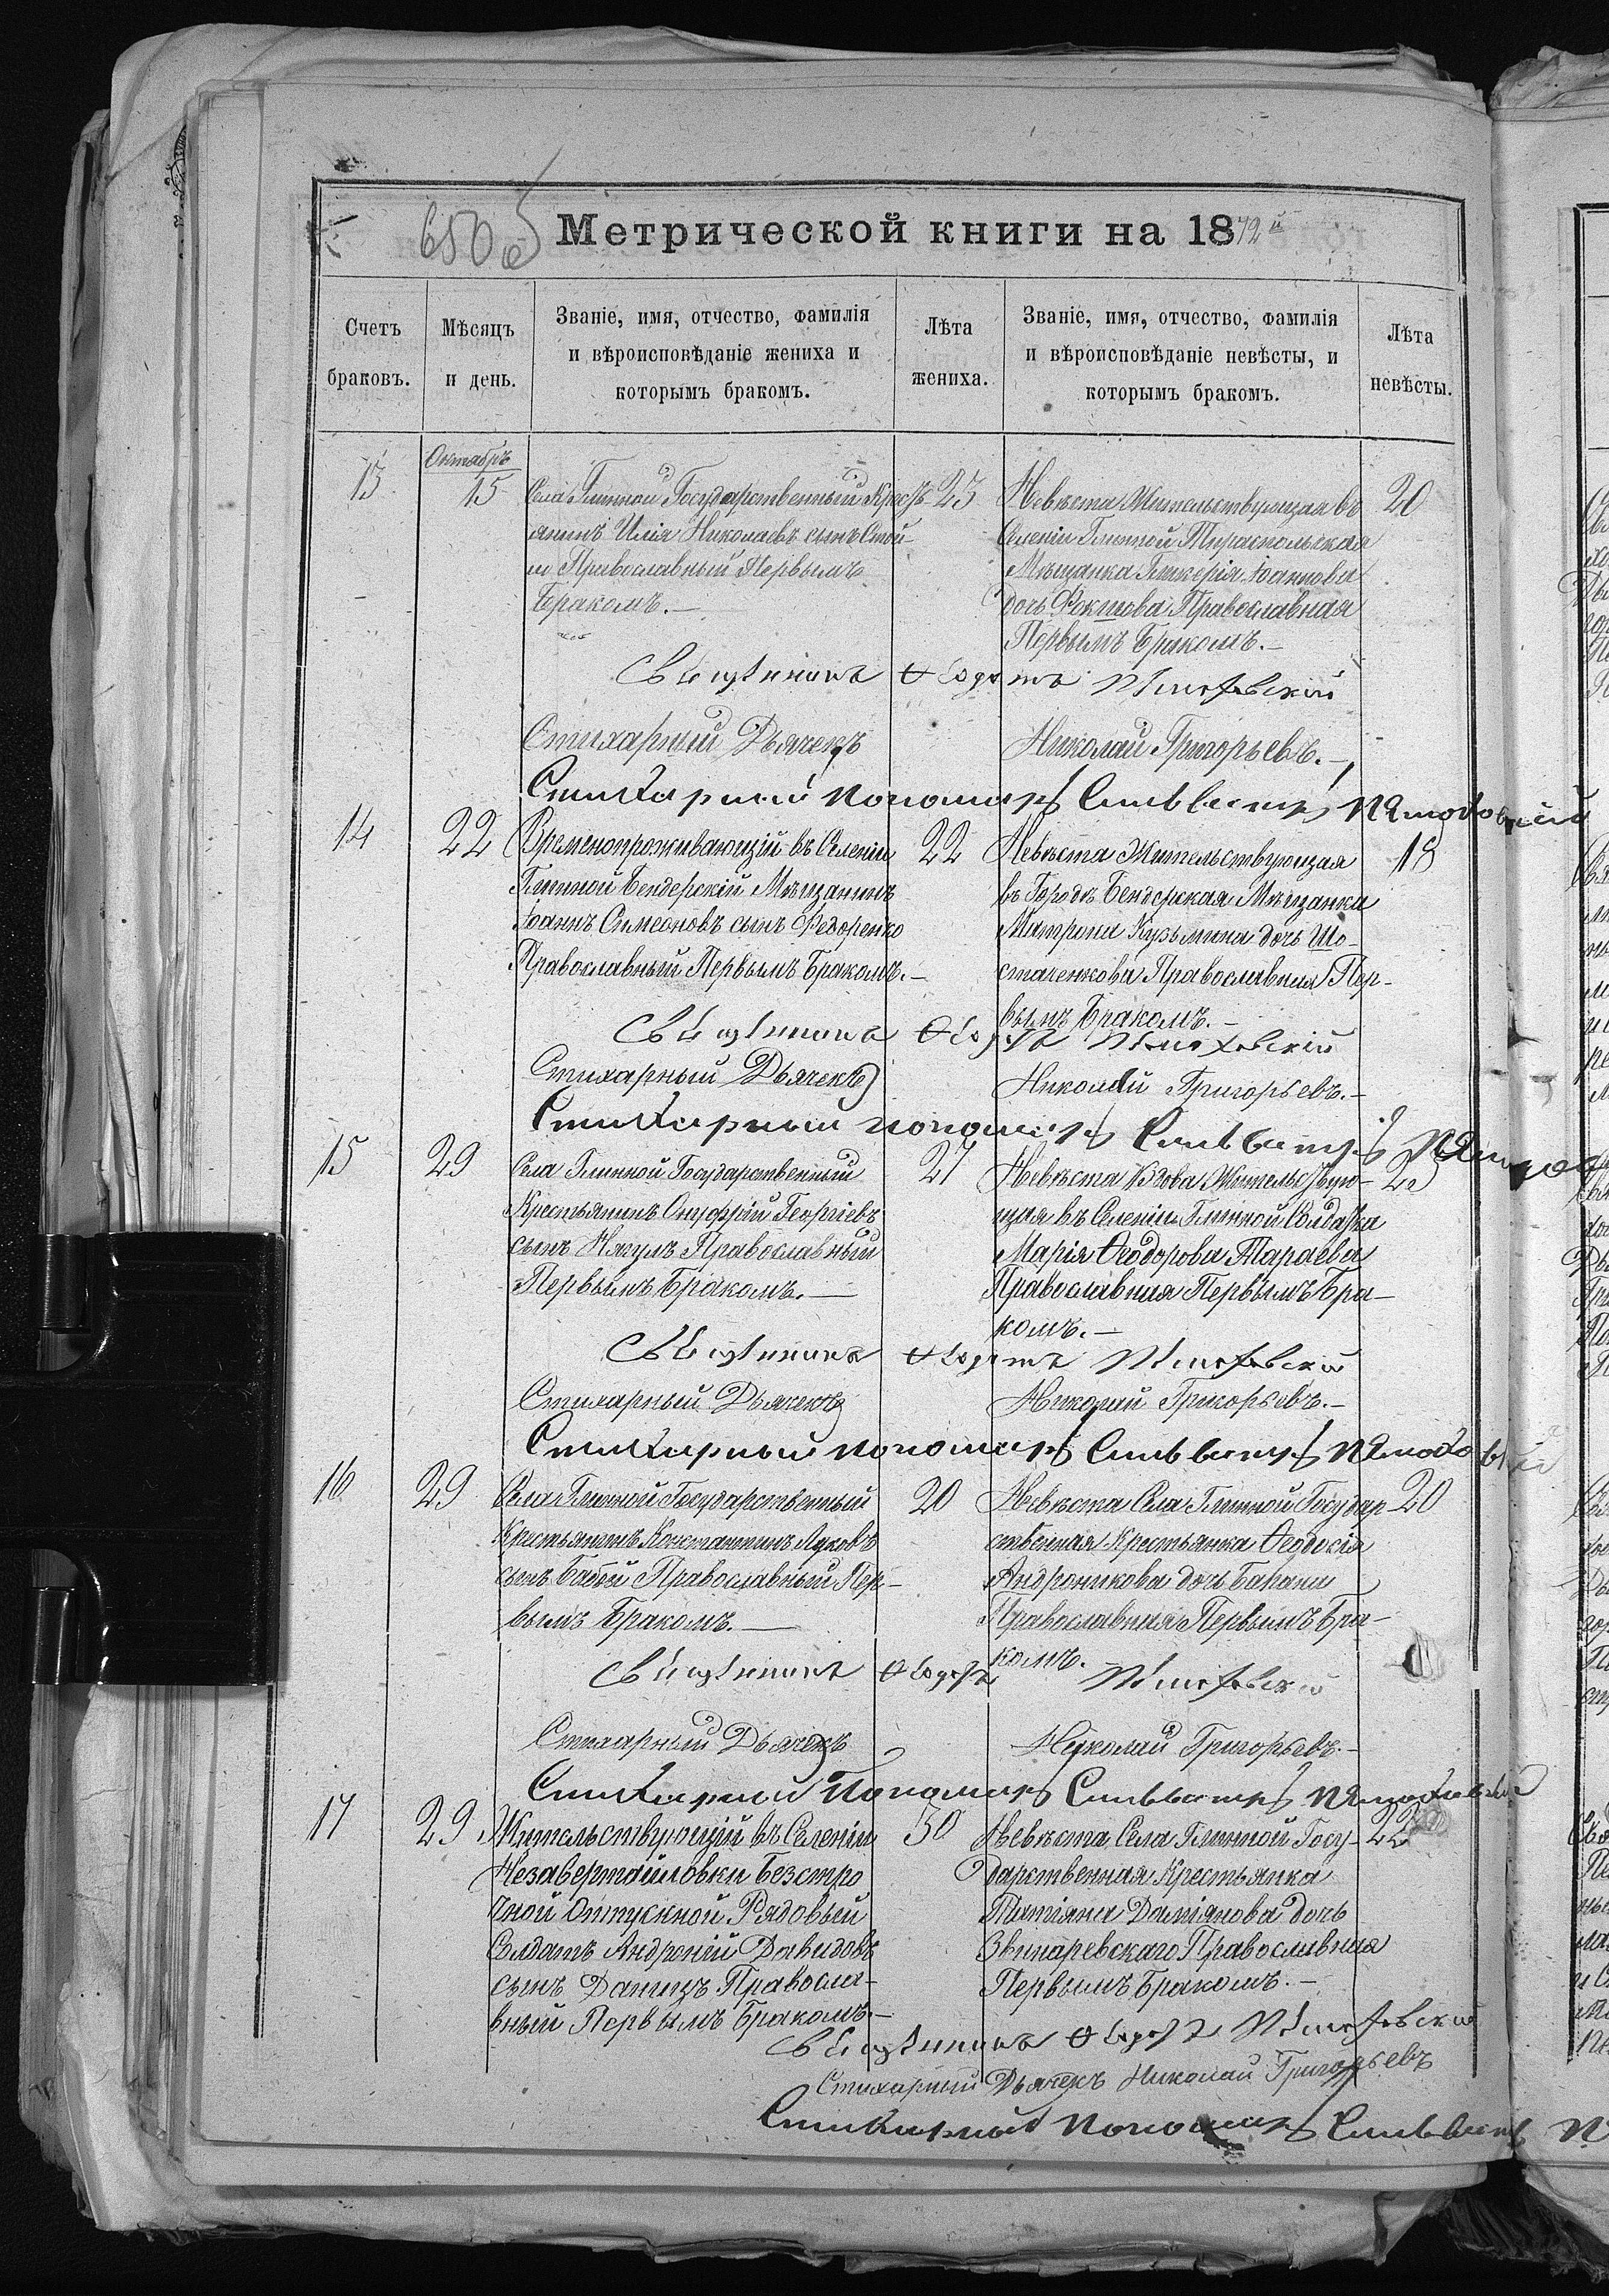 650 об
Метрической книги на 1872й
Счетъ браковъ.
Мѣсяцъ и день.
Званіе, имя, отчество, фамилія и вѣроисповѣданіе жениха и которымъ бракомъ.
Лѣта жениха.
Званіе, имя, отчество, фамилія и вѣроисповѣданіе невѣсты, и которымъ бракомъ.
Лѣта невѣсты.
Октябрь
13
15
Села Глинной Государственный Крестъ-
янинъ Илія Николаевъ сынъ Стой-
Православный Первымъ
Бракомъ.—
23
Невѣста Жительствующая въ
Селеніи Глинной Тираспольская
Мѣщанка Гликерія Іоаннова
дочь Православная
Первымъ Бракомъ.—
20
Священникъ Ѳеодотъ
Стихарный Дьячекъ Николай Григорьевъ.—
Стихарный пономарь Сильвестръ
14
22
Временопроживающій въ Селеніи
Глинной Бендерскій Мѣщанинъ
Іоаннъ Симеоновъ сынъ Федоренко
Православный Первымъ Бракомъ.—
22
Невѣста Жительствующая
въ Городѣ Бендерская Мѣщанка
Матрона Кузьмина дочь Шо-
стаченкова Православная Пер-
вымъ Бракомъ.—
18
Священникъ Ѳеодотъ
Стихарный Дьячекъ Николай Григорьевъ.—
Стихарный пономарь Сильвестръ
15
29
Села Глинной Государственный
Крестьянинъ Онуфрій Георгіевъ
сынъ Нягулъ Православный
Первымъ Бракомъ.—
27
Невѣста Вдова Жительствую-
щая въ Селеніи Глинной Солдатка
Марія Ѳеодорова Тараева
Православная Первымъ Бра-
комъ.—
25
Священникъ Ѳеодотъ
Стихарный Дьячекъ Николай Григорьевъ.—
Стихарный пономарь Сильвестръ
16
29
Села Глинной Государственный
Крестьянинъ Константинъ Луковъ
сынъ Бабой Православный Пер-
вымъ Бракомъ.—
20
Невѣста Села Глинной Государ-
ственная Крестьянка Ѳеодосія
Андроникова дочь
Православная Первымъ Бра-
комъ.
20
Священникъ Ѳеодотъ
Стихарный Дьячекъ Николай Григорьевъ.—
Стихарный Пономарь Сильвестръ
17
29
Жительствующій въ Селеніи
Незавертайловки Безсро
чной Отпускной Рядовый
Солдатъ Андроній Давидовъ
сынъ Правосла-
вный Первымъ Бракомъ.—
30
Невѣста Села Глинной Госу-
дарственная Крестьянка
Татіяна Даміянова дочь
Звинаревскаго Православная
Первымъ Бракомъ.—
22
Священникъ Ѳеодотъ
Стихарный Дьячекъ Николай Григорьевъ
Стихарный Пономарь Сильвестръ